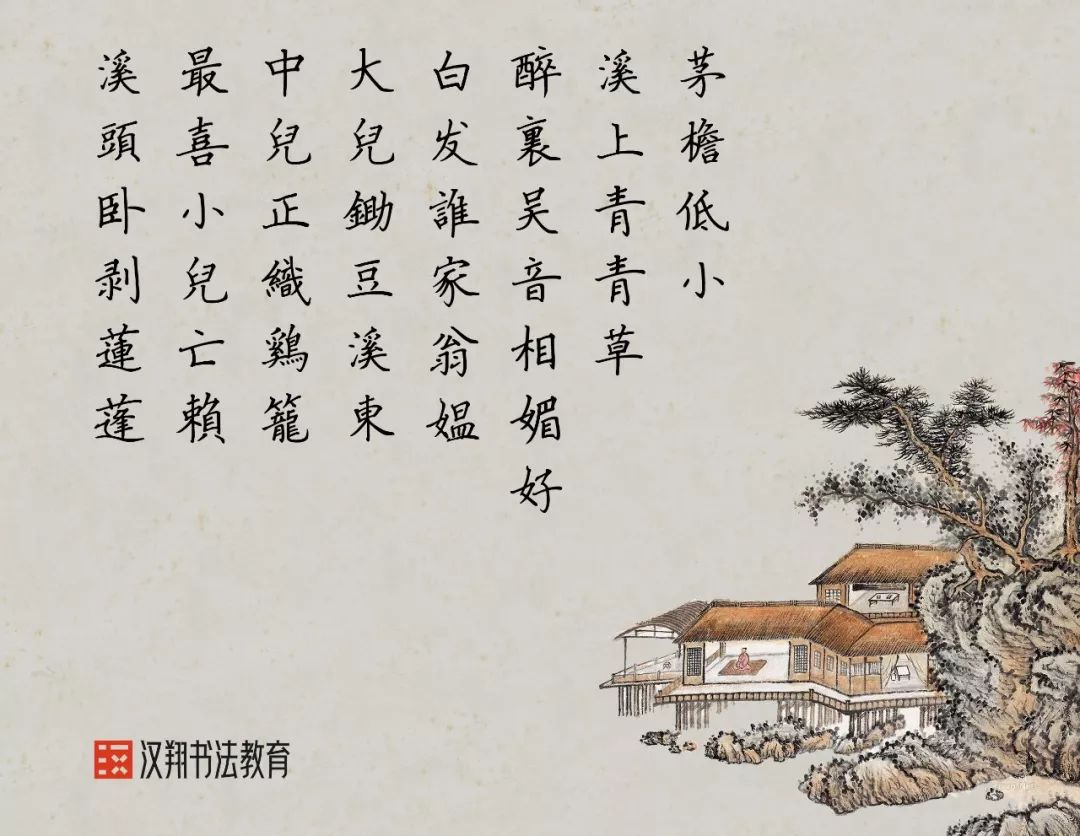 茅檐低小
溪上青青草
醉裏吴音相媚好
白发誰家翁媪
大兒鋤豆溪東
中兒正織鷄籠
最喜小兒亡賴
溪頭卧剥蓮蓬
汉翔书法教育